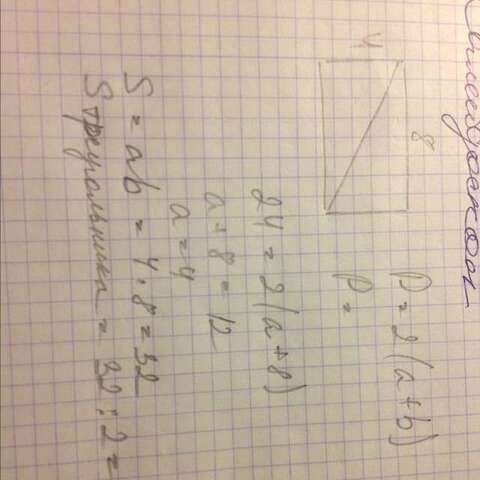 4
8
P = 2(a+b)
P =
24 = 2(a+8)
a+8 = 12
a = 4
S = ab = 4 · 8 = 32
S треугольника = 32 : 2 =